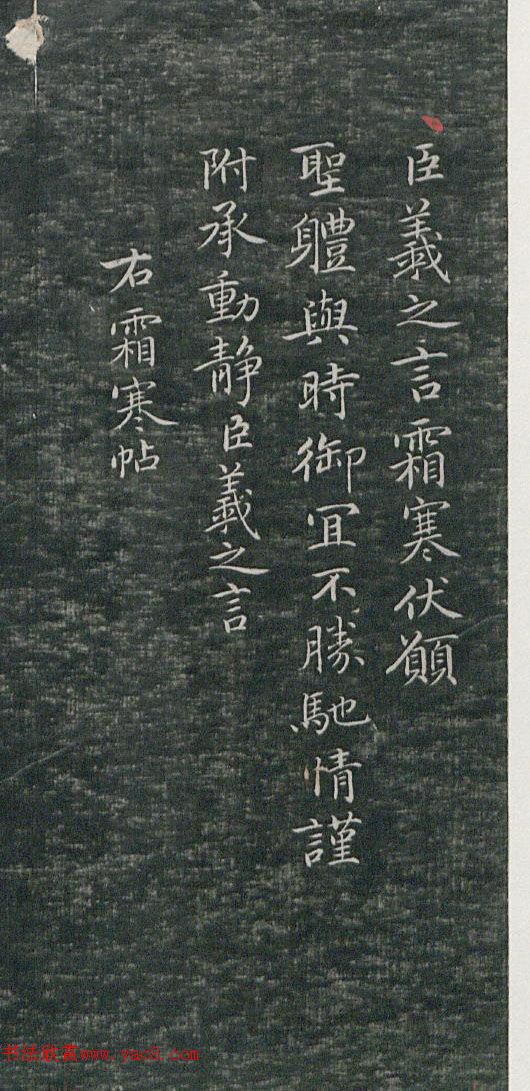 臣羲之言霜寒伏願
聖體與時御宜不勝馳情謹
附承動静臣羲之言
右霜寒帖
书法欣赏www.yac8.com